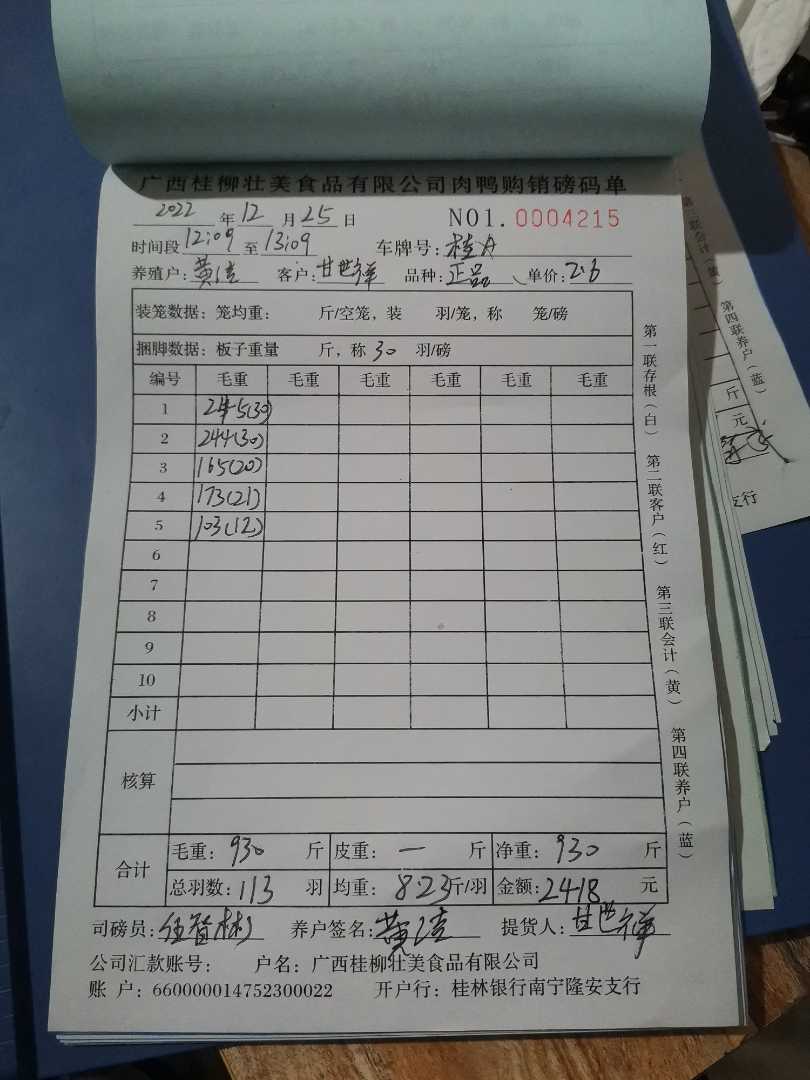 广西桂柳壮美食品有限公司肉鸭购销磅码单
2022年12月25日 NO1.0004215
时间段12:09至13:09 车牌号:桂A
养殖户: 客户:甘世祥 品种:正品 单价:2.6
装笼数据:笼均重: 斤/空笼,装 羽/笼,称 笼/磅
捆脚数据:板子重量 斤,称30羽/磅
编号 毛重 毛重 毛重 毛重 毛重 毛重
1 245(30)
2 244(30)
3 165(20)
4 173(21)
5 103(12)
6
7
8
9
10
小计
核算
合计
毛重:930斤 皮重:一斤 净重:930斤
总羽数:113羽 均重:8.23斤/羽 金额:2418元
司磅员: 养户签名: 提货人:甘世祥
公司汇款账号: 户名:广西桂柳壮美食品有限公司
账 户:660000014752300022 开户行:桂林银行南宁隆安支行
第一联存根(白) 第二联客户(红) 第三联会计(黄) 第四联养户(蓝)
第三联会计(黄) 第四联养户(蓝)
斤
元
支行